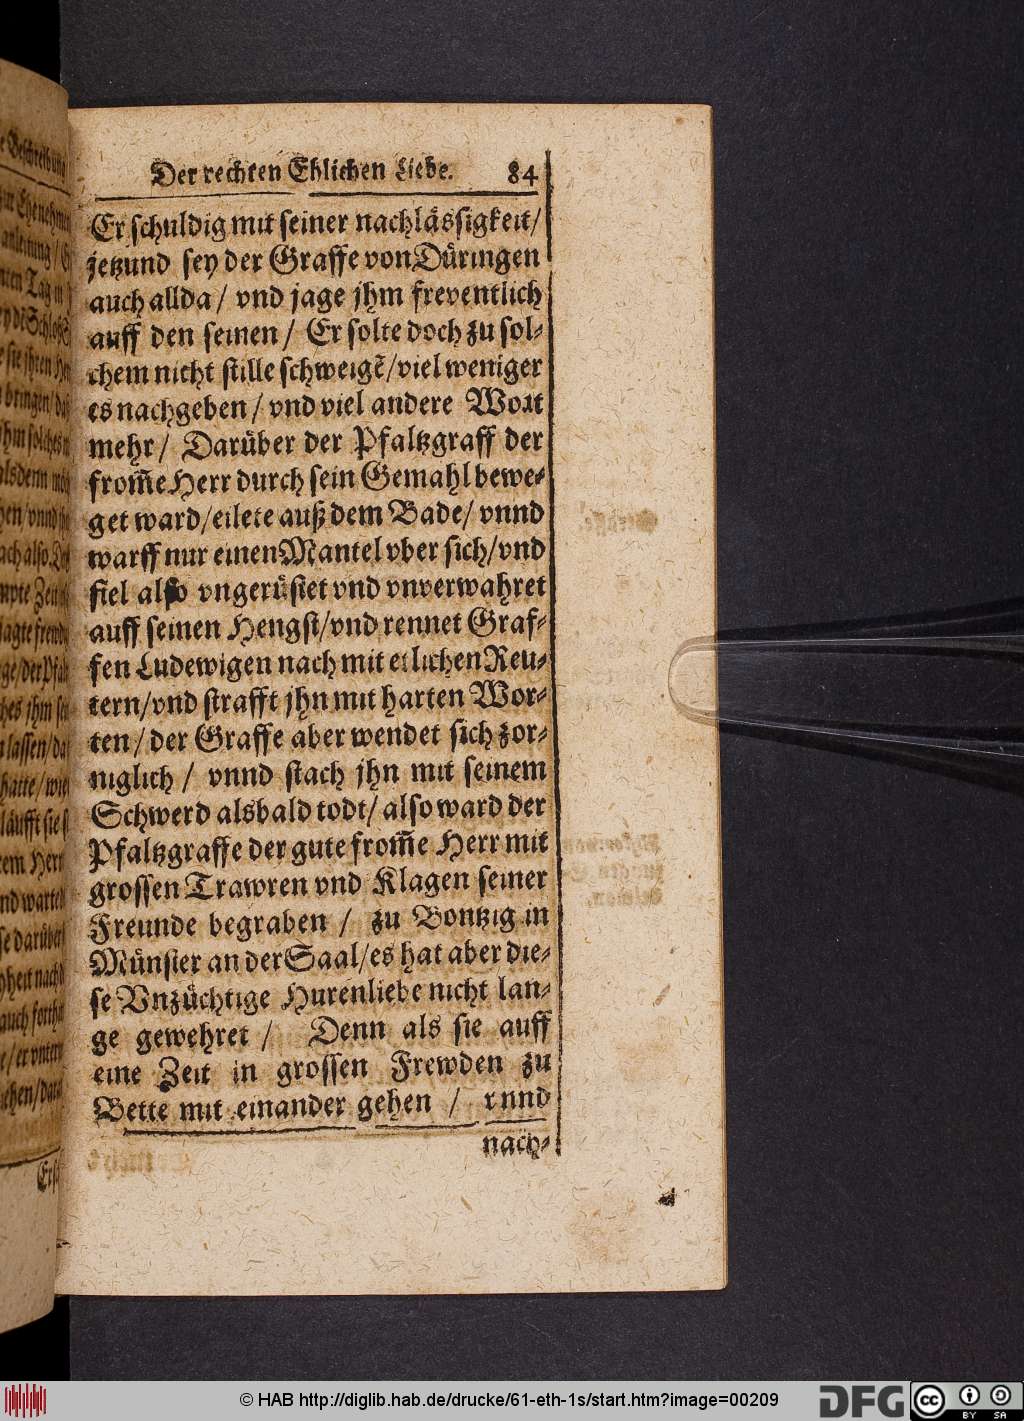 Der rechten Ehlichen Liebe. 84
Er schuldig mit seiner nachlässigkeit/
jetzund sey der Graffe von Düringen
auch allda/ vnd jage jhm freventlich
auff den seinen/ Er solte doch zu sol-
chem nicht stille schweigẽ/ viel weniger
es nachgeben/ vnd viel andere Wort
mehr/ Darüber der Pfaltzgraff der
from̃e Herr durch sein Gemahl bewe-
get ward/ eilete auß dem Bade/ vnnd
warff nur einen Mantel vber sich/ vnd
fiel also vngerüstet vnd vnverwahret
auff seinen Hengst/ vnd rennet Graf-
fen Ludewigen nach mit etlichen Reu-
tern/ vnd strafft jhn mit harten Wor-
ten/ der Graffe aber wendet sich zor-
niglich/ vnnd stach jhn mit seinem
Schwerd alsbald todt/ also ward der
Pfaltzgraffe der gute from̃e Herr mit
grossen Trawren vnd Klagen seiner
Freunde begraben/ zu Bontzig in
Münster an der Saal/ es hat aber die-
se Vnzüchtige Hurenliebe nicht lan-
ge gewehret/ Denn als sie auff
eine Zeit in grossen Frewden zu
Bette mit einander gehen/ vnnd
nach-
© HAB http://diglib.hab.de/drucke/61-eth-1s/start.htm?image=00209
DFG
cc BY SA